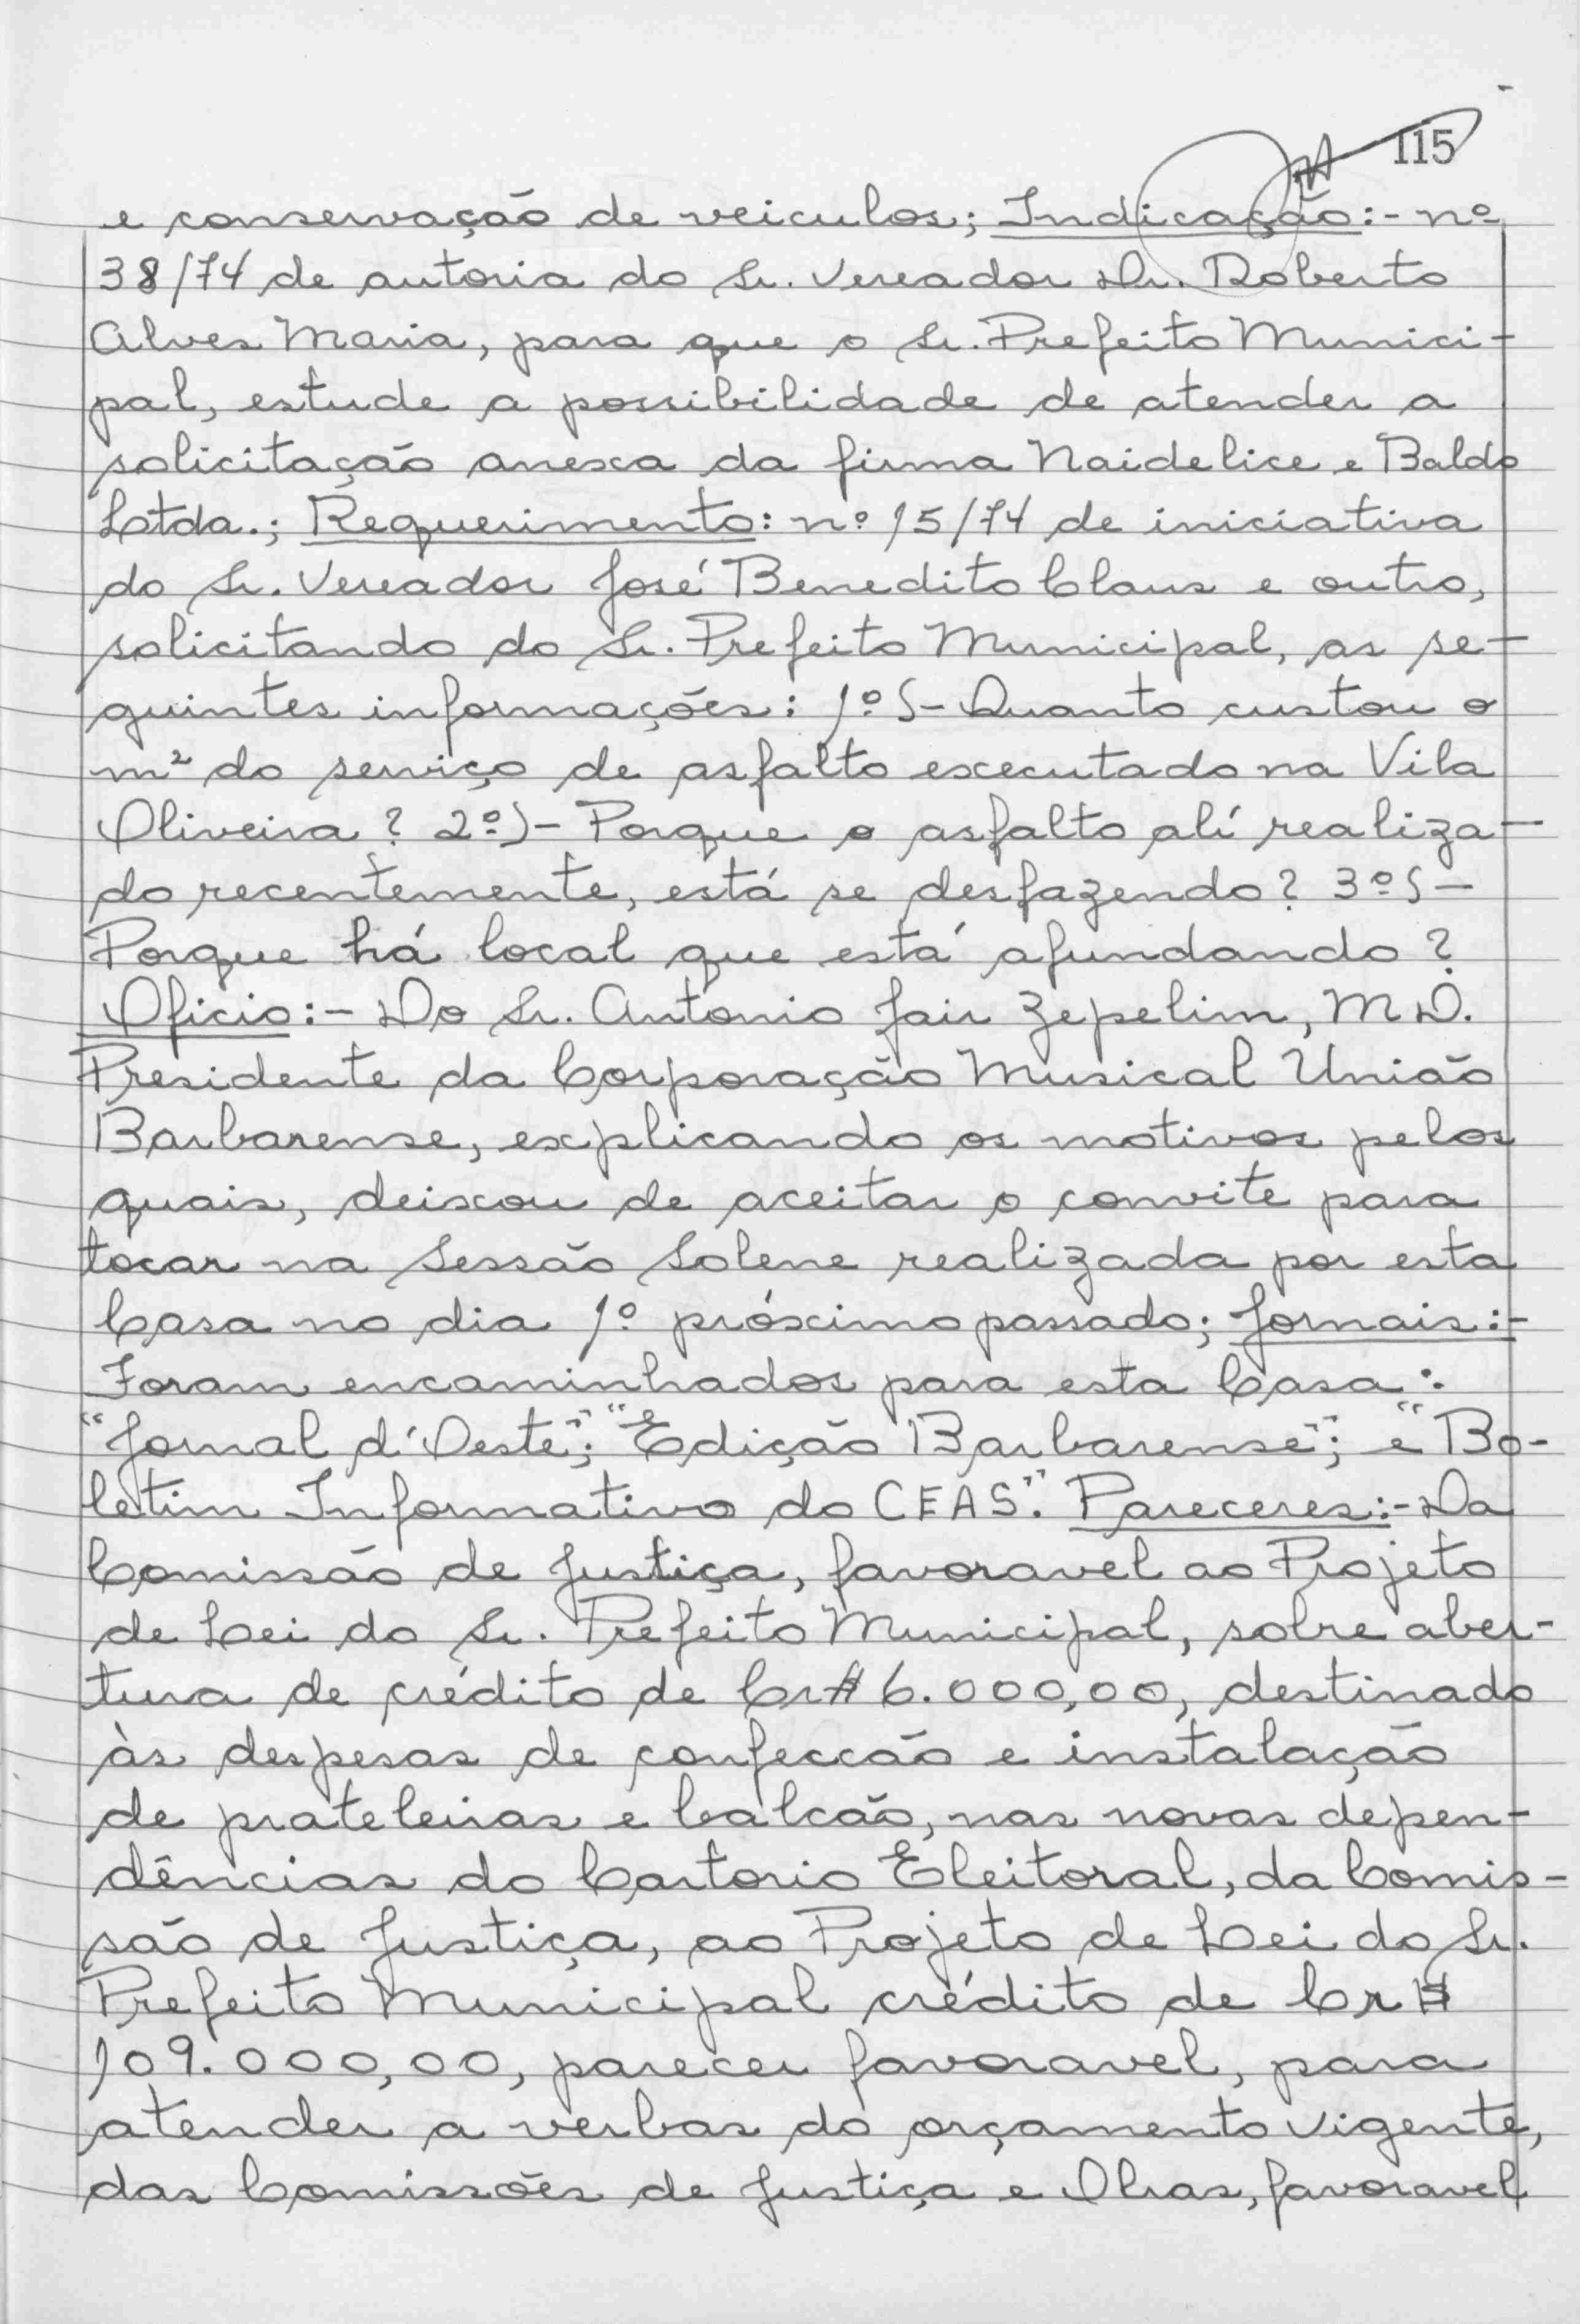 115
e conservação de veiculos; Indicação:- nº
38/74 de autoria do Sr. Vereador Dr. Roberto
Alves Maria, para que o Sr. Prefeito Munici-
pal, estude a possibilidade de atender a
solicitação anexa da firma Naidelice e Baldo
Ltda.; Requerimento: nº 15/74 de iniciativa
do Sr. Vereador José Benedito Claus e outro,
solicitando do Sr. Prefeito Municipal, as se-
guintes informações: 1º)- Quanto custou o
m² do serviço de asfalto executado na Vila
Oliveira? 2º)- Porque o asfalto alí realiza-
do recentemente, está se desfazendo? 3º)-
Porque há local que está afundando?
Oficio:- Do Sr. Antonio Jair Zepelim, M D.
Presidente da Corporação Musical União
Barbarense, explicando os motivos pelos
quais, deixou de aceitar o convite para
tocar na Sessão Solene realizada por esta
Casa no dia 1º próximo passado; Jornais:-
Foram encaminhados para esta Casa:
"Jornal d'Oeste"; "Edição Barbarense"; e "Bo-
letim Informativo do CEAS". Pareceres:- Da
Comissão de Justiça, favoravel ao Projeto
de Lei do Sr. Prefeito Municipal, sobre aber-
tura de crédito de Cr$ 6.000,00, destinado
às despesas de confeccão e instalação
de prateleiras e balcão, nas novas depen-
dências do Cartorio Eleitoral, da Comis-
são de Justiça, ao Projeto de Lei do Sr.
Prefeito Municipal crédito de Cr$
109.000,00, parecer favoravel, para
atender a verbas do orçamento vigente,
das Comissões de Justiça e Obras, favoravel